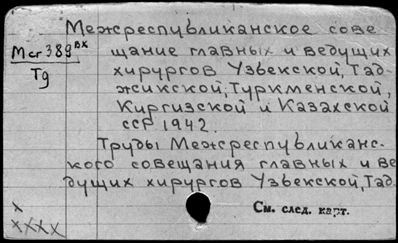 Межреспубликанское сове
Мсг389вх
Т9
щание главных и ведущих
хирургов Узбекской, Тад-
жикской, Туркменской,
Киргизской и Казахской
ССР 1942.
Труды Межреспубликанс-
кого совещания главных и ве
дущих хирургов Узбекской, Тад.
См. след. карт.
x
xxxx